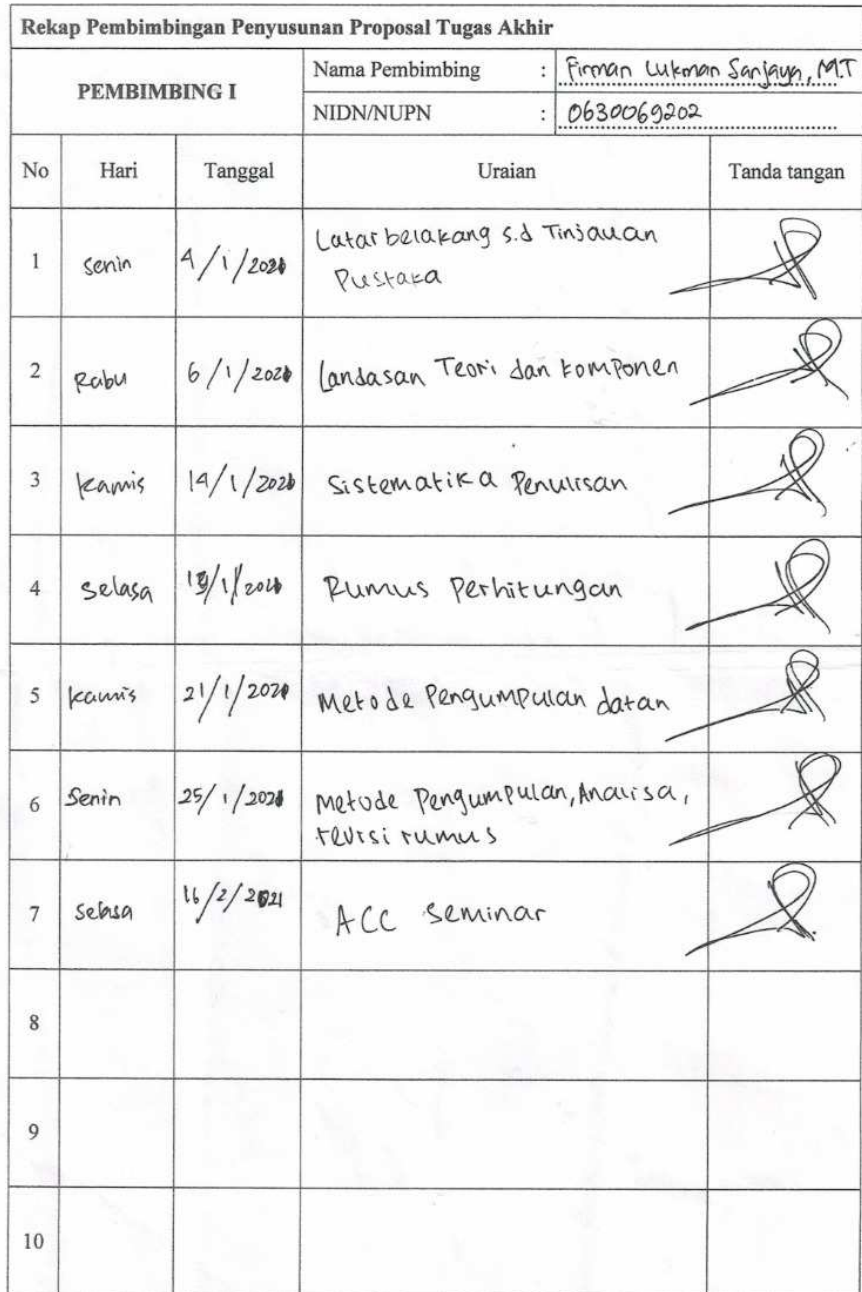 Rekap Pembimbingan Penyusunan Proposal Tugas Akhir
PEMBIMBING I
Nama Pembimbing : Firman Lukman Sanjaya, M.T
NIDN/NUPN : 0630069202
No Hari Tanggal Uraian Tanda tangan
1 Senin 4/1/2021 Latar belakang s.d Tinjauan
Pustaka
2 Rabu 6/1/2021 Landasan Teori dan komponen
3 kamis 14/1/2021 Sistematika Penulisan
4 selasa 19/1/2021 Rumus Perhitungan
5 kamis 21/1/2021 Metode Pengumpulan datan
6 Senin 25/1/2021 Metode Pengumpulan, Analisa,
revisi rumus
7 selasa 16/2/2021 ACC Seminar
8
9
10